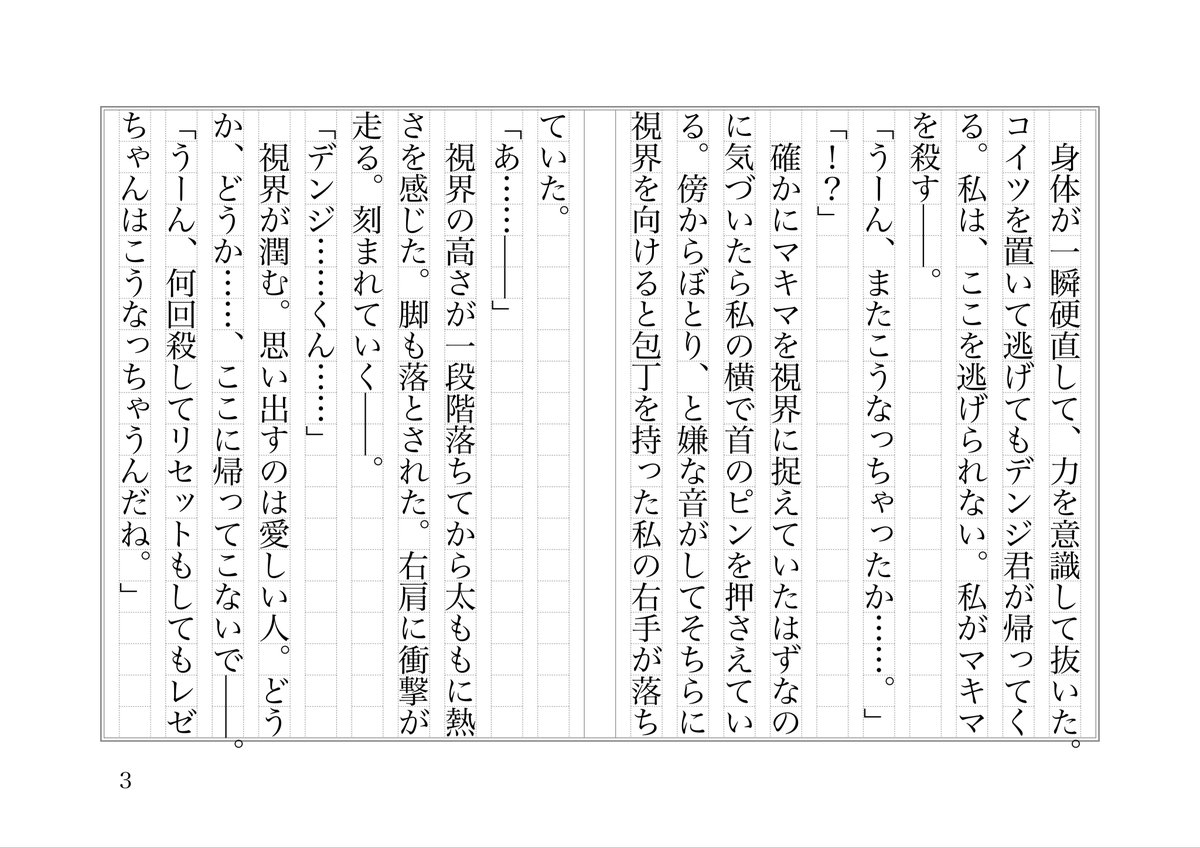 身体が一瞬硬直して、力を意識して抜いた。
コイツを置いて逃げてもデンジ君が帰ってく
る。私は、ここを逃げられない。私がマキマ
を殺す――。
「うーん、またこうなっちゃったか……。」
「！？」
　確かにマキマを視界に捉えていたはずなの
に気づいたら私の横で首のピンを押さえてい
る。傍からぼとり、と嫌な音がしてそちらに
視界を向けると包丁を持った私の右手が落ち
ていた。
「あ……――」
　視界の高さが一段階落ちてから太ももに熱
さを感じた。脚も落とされた。右肩に衝撃が
走る。刻まれていく――。
「デンジ……くん……」
　視界が潤む。思い出すのは愛しい人。どう
か、どうか……、ここに帰ってこないで――。
「うーん、何回殺してリセットもしてもレゼ
ちゃんはこうなっちゃうんだね。」
3